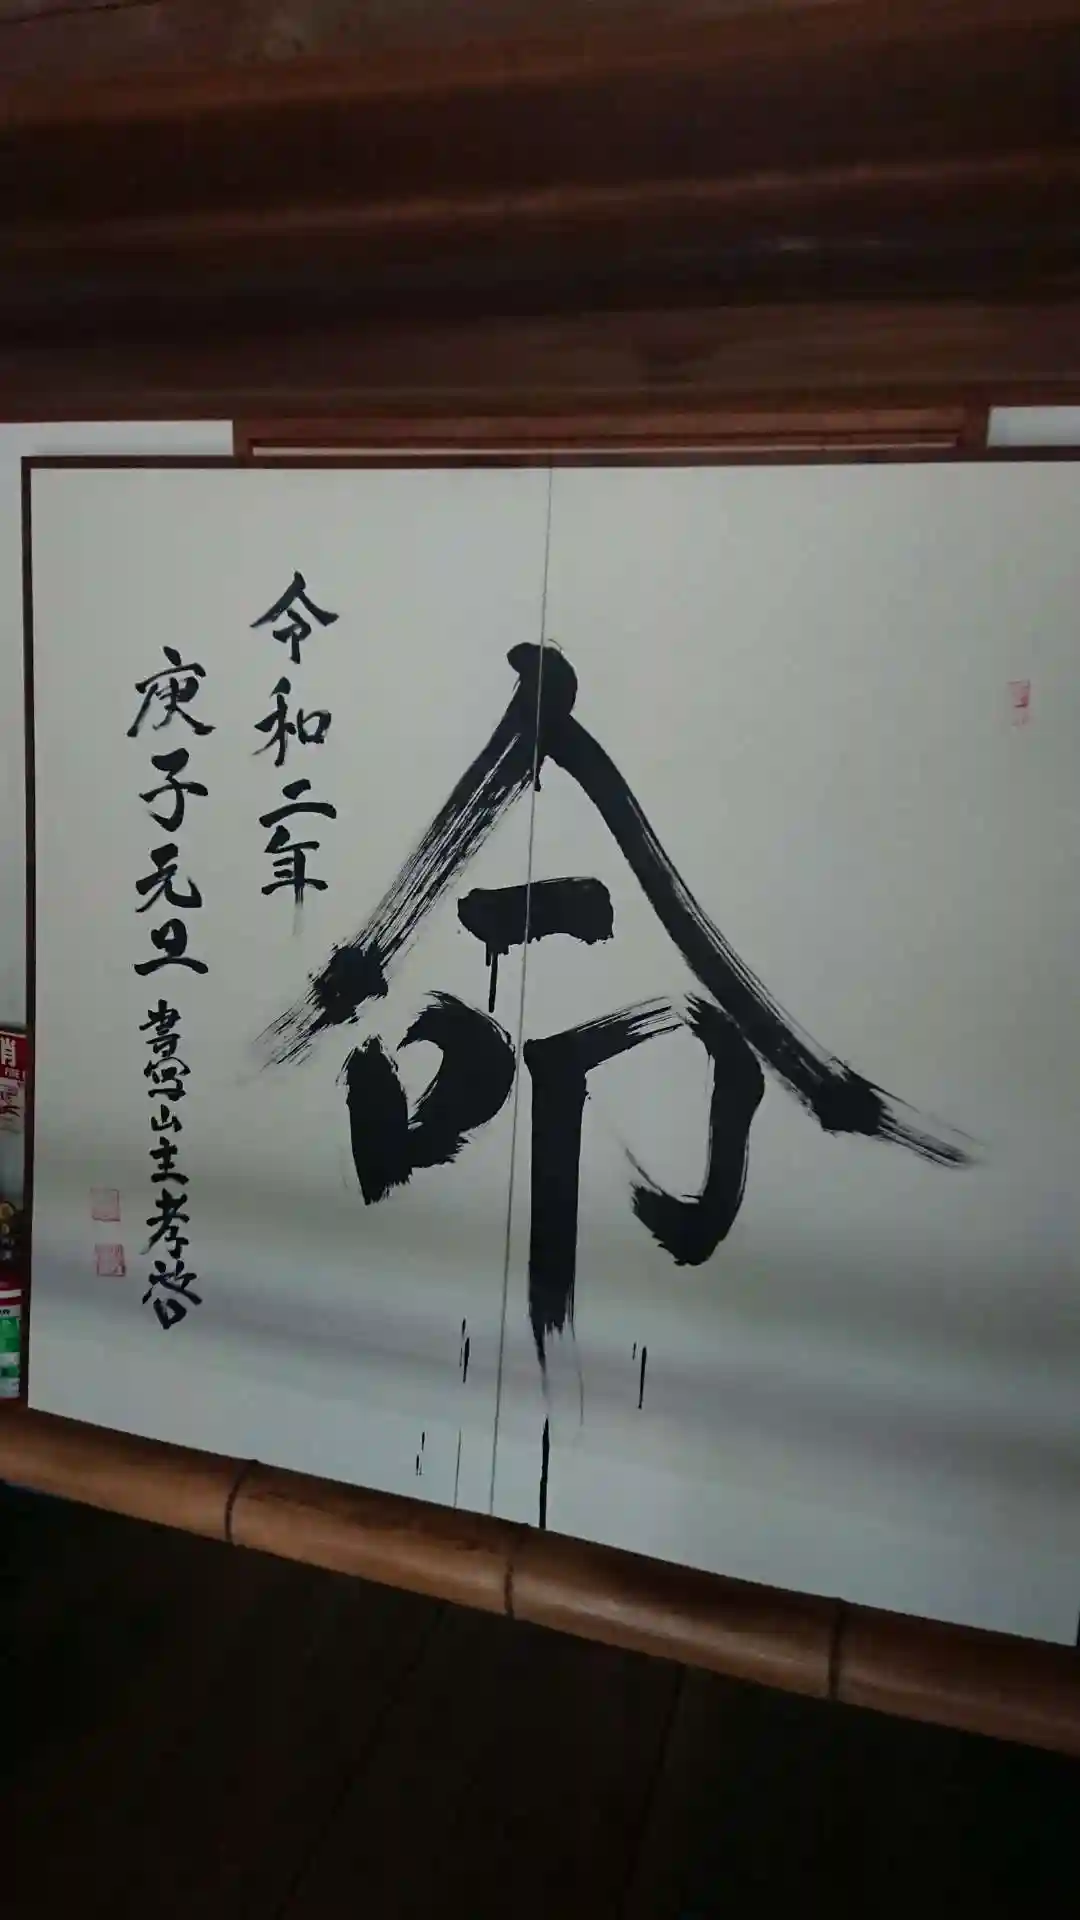 命
令和二年
庚子元旦 書寫山主孝啓
消
FIRE